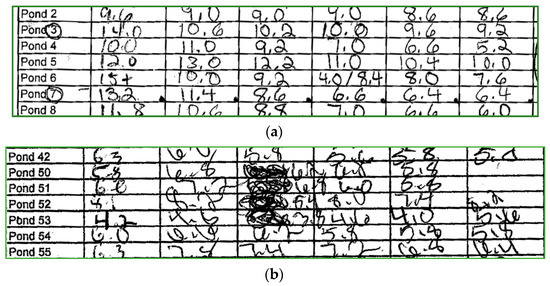 Pond 2 9.6 9.0 9.0 9.0 8.6 8.6
Pond 3 14.0 10.6 10.2 10.0 9.6 9.2
Pond 4 10.0 11.0 9.2 7.0 6.6 5.2
Pond 5 12.0 13.0 12.2 11.0 10.4 10.0
Pond 6 15+ 10.0 9.2 4.0/8.4 8.0 7.6
Pond 7 13.2 11.4 8.6 6.6 6.4 6.4
Pond 8 11.8 10.6 8.8 7.0 6.6 6.0
(a)
Pond 42 6.3 6.0 5.8 5.6 5.8
Pond 50 6.8 5.8
Pond 51 6.0 7.2 6.0 5.8
Pond 52 8.2 8.0 7.4
Pond 53 4.2 4.6 3.8 4.6 4.0 5.6
Pond 54 6.0 6.0 6.2 5.8 5.8 5.8
Pond 55 6.3 7.4 7.2 6.8 6.4
(b)